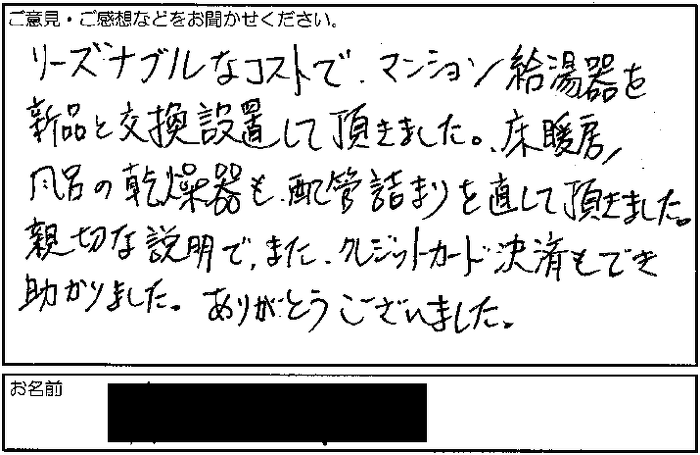 ご意見・ご感想などをお聞かせください。
リーズナブルなコストで、マンション給湯器を
新品と交換設置して頂きました。床暖房/
風呂の乾燥器も、配管詰まりを直して頂きました。
親切な説明で、また、クレジットカード決済もでき
助かりました。ありがとうございました。
お名前